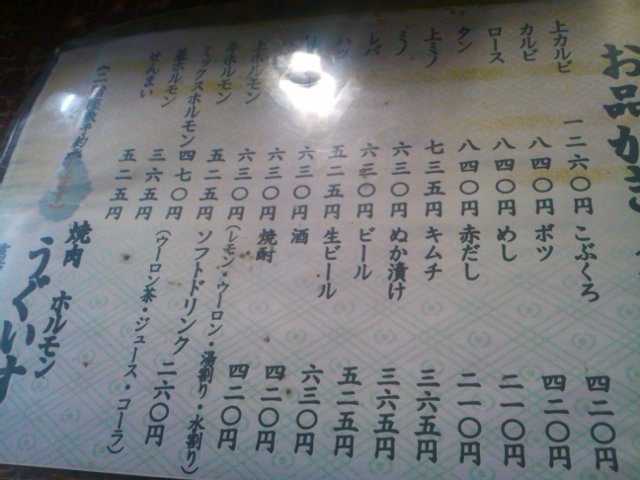 お品がき
上カルビ 一二六〇円
カルビ 八四〇円
ロース 八四〇円
タン 八四〇円
上ミノ 七三五円
ミノ 六三〇円
レバ 六三〇円
ハツ 五二五円
六三〇円
六三〇円
上ホルモン 六三〇円
牛ホルモン 五二五円
ミックスホルモン 四七〇円
ホルモン 三六五円
せんまい 五二五円
こぶくろ 四二〇円
ポツ 四二〇円
めし 二一〇円
赤だし 二一〇円
キムチ 三六五円
ぬか漬け 三六五円
ビール 五二五円
生ビール 六三〇円
酒 四二〇円
焼酎 四二〇円
(レモン・ウーロン・湯割り・水割り)
ソフトドリンク 二六〇円
(ウーロン茶・ジュース・コーラ)
焼肉 ホルモン
うぐいす